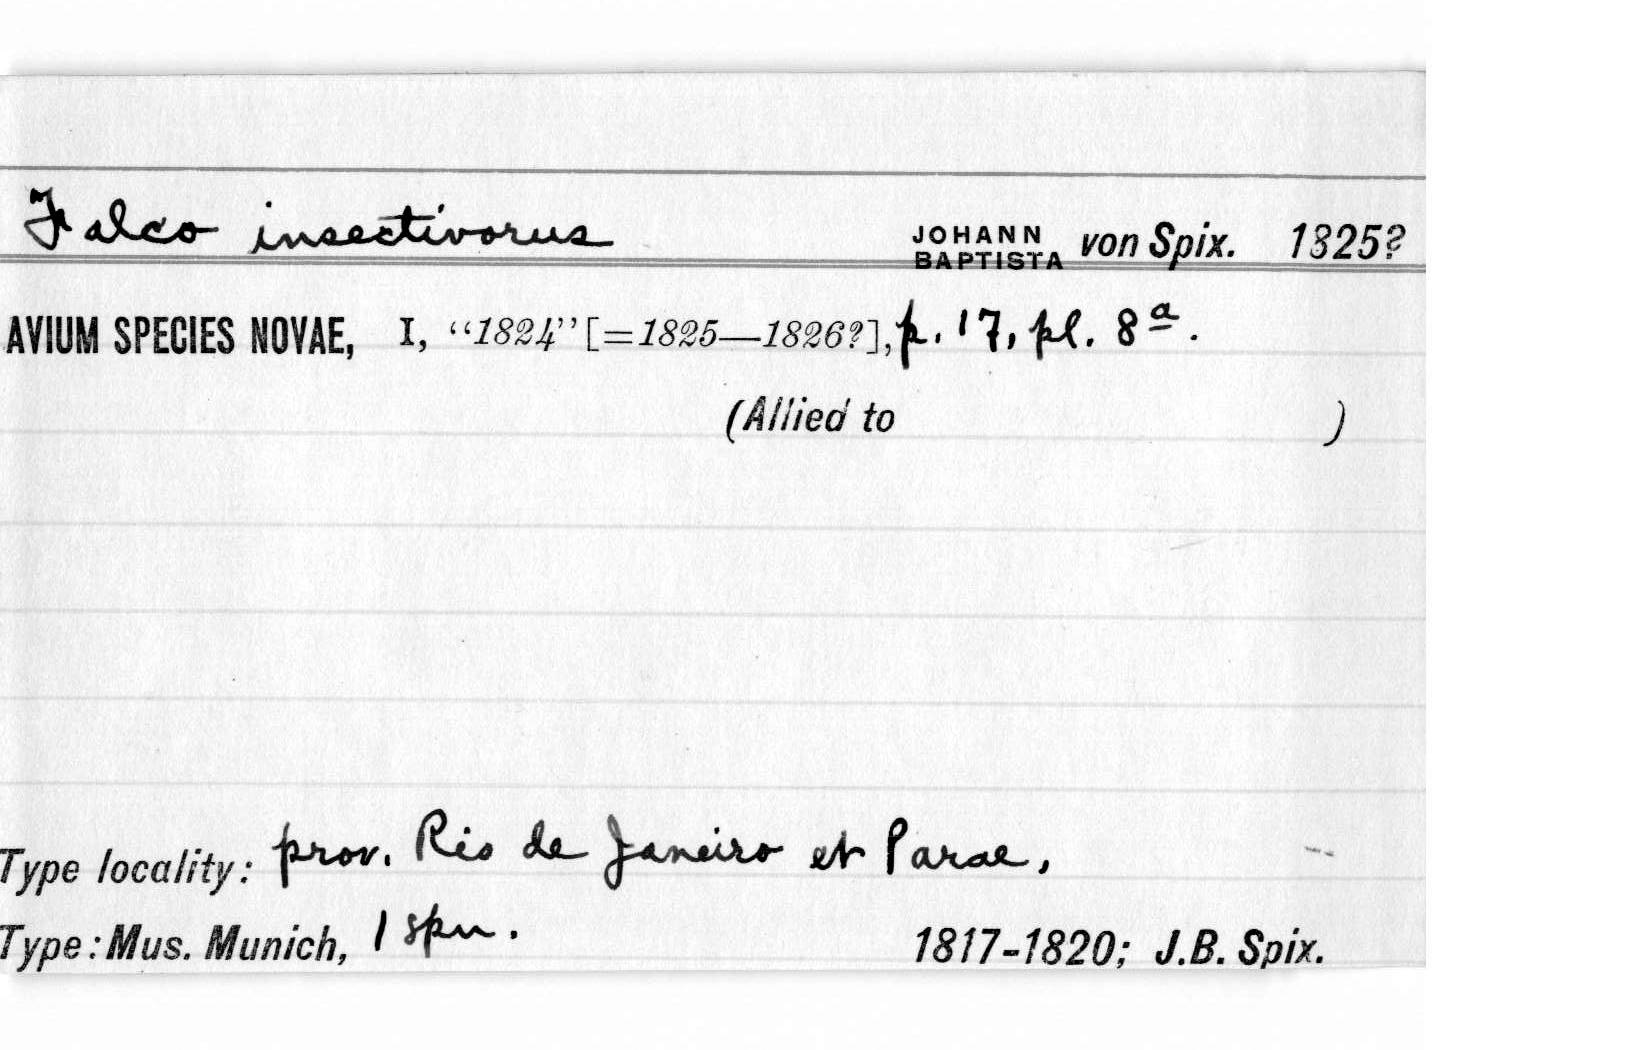 Falco insectivorus JOHANN BAPTISTA von Spix. 1825?
AVIUM SPECIES NOVAE, I, “1824” [=1825—1826?], p. 17, pl. 8ª.
(Allied to )
Type locality: prov. Rio de Janeiro et Parae,
Type: Mus. Munich, 1 spn. 1817-1820; J.B. Spix.